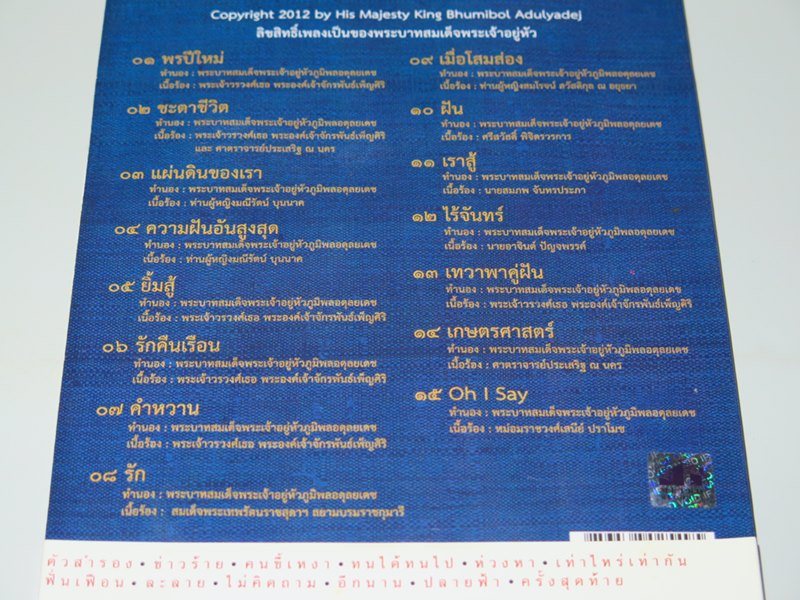 Copyright 2012 by His Majesty King Bhumibol Adulyadej
ลิขสิทธิ์เพลงเป็นของพระบาทสมเด็จพระเจ้าอยู่หัว
๐๑ พรปีใหม่
ทำนอง : พระบาทสมเด็จพระเจ้าอยู่หัวภูมิพลอดุลยเดช
เนื้อร้อง : พระเจ้าวรวงศ์เธอ พระองค์เจ้าจักรพันธ์เพ็ญศิริ
๐๒ ชะตาชีวิต
ทำนอง : พระบาทสมเด็จพระเจ้าอยู่หัวภูมิพลอดุลยเดช
เนื้อร้อง : พระเจ้าวรวงศ์เธอ พระองค์เจ้าจักรพันธ์เพ็ญศิริ
และ ศาตราจารย์ประเสริฐ ณ นคร
๐๓ แผ่นดินของเรา
ทำนอง : พระบาทสมเด็จพระเจ้าอยู่หัวภูมิพลอดุลยเดช
เนื้อร้อง : ท่านผู้หญิงมณีรัตน์ บุนนาค
๐๔ ความฝันอันสูงสุด
ทำนอง : พระบาทสมเด็จพระเจ้าอยู่หัวภูมิพลอดุลยเดช
เนื้อร้อง : ท่านผู้หญิงมณีรัตน์ บุนนาค
๐๕ ยิ้มสู้
ทำนอง : พระบาทสมเด็จพระเจ้าอยู่หัวภูมิพลอดุลยเดช
เนื้อร้อง : พระเจ้าวรวงศ์เธอ พระองค์เจ้าจักรพันธ์เพ็ญศิริ
๐๖ รักคืนเรือน
ทำนอง : พระบาทสมเด็จพระเจ้าอยู่หัวภูมิพลอดุลยเดช
เนื้อร้อง : พระเจ้าวรวงศ์เธอ พระองค์เจ้าจักรพันธ์เพ็ญศิริ
๐๗ คำหวาน
ทำนอง : พระบาทสมเด็จพระเจ้าอยู่หัวภูมิพลอดุลยเดช
เนื้อร้อง : พระเจ้าวรวงศ์เธอ พระองค์เจ้าจักรพันธ์เพ็ญศิริ
๐๘ รัก
ทำนอง : พระบาทสมเด็จพระเจ้าอยู่หัวภูมิพลอดุลยเดช
เนื้อร้อง : สมเด็จพระเทพรัตนราชสุดาฯ สยามบรมราชกุมารี
๐๙ เมื่อโสมส่อง
ทำนอง : พระบาทสมเด็จพระเจ้าอยู่หัวภูมิพลอดุลยเดช
เนื้อร้อง : ท่านผู้หญิงสมโรจน์ สวัสดิกุล ณ อยุธยา
๑๐ ฝัน
ทำนอง : พระบาทสมเด็จพระเจ้าอยู่หัวภูมิพลอดุลยเดช
เนื้อร้อง : ศรีสวัสดิ์ พิจิตรวรการ
๑๑ เราสู้
ทำนอง : พระบาทสมเด็จพระเจ้าอยู่หัวภูมิพลอดุลยเดช
เนื้อร้อง : นายสมภพ จันทรประภา
๑๒ ไร้จันทร์
ทำนอง : พระบาทสมเด็จพระเจ้าอยู่หัวภูมิพลอดุลยเดช
เนื้อร้อง : นายอาจินต์ ปัญจพรรค์
๑๓ เทวาพาคู่ฝัน
ทำนอง : พระบาทสมเด็จพระเจ้าอยู่หัวภูมิพลอดุลยเดช
เนื้อร้อง : พระเจ้าวรวงศ์เธอ พระองค์เจ้าจักรพันธ์เพ็ญศิริ
๑๔ เกษตรศาสตร์
ทำนอง : พระบาทสมเด็จพระเจ้าอยู่หัวภูมิพลอดุลยเดช
เนื้อร้อง : ศาตราจารย์ประเสริฐ ณ นคร
๑๕ Oh I Say
ทำนอง : พระบาทสมเด็จพระเจ้าอยู่หัวภูมิพลอดุลยเดช
เนื้อร้อง : หม่อมราชวงศ์เสนีย์ ปราโมช
ตัวสำรอง • ข่าวร้าย • คนขี้เหงา • ทนได้ทนไป • ห่วงหา • เท่าไหร่เท่ากัน
ฟั่นเฟือน • ละลาย • ไม่คิดถาม • อีกนาน • ปลายฟ้า • ครั้งสุดท้าย